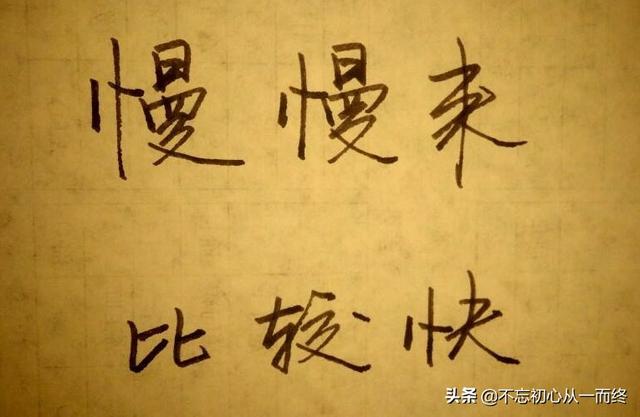 慢慢来
比较快
头条 @不忘初心从一而终